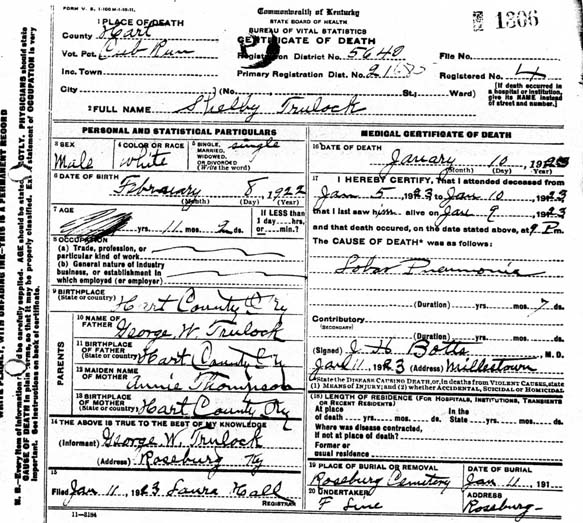 FORM V. S. 1-100 M-1-10-11.
Commonwealth of Kentucky
STATE BOARD OF HEALTH
BUREAU OF VITAL STATISTICS
CERTIFICATE OF DEATH
1306
1 PLACE OF DEATH
County Hart
Vot. Pct. Cub Run
Registration District No. 5640
File No.
Inc. Town
Primary Registration Dist. No.
Registered No. 4
City (No. St.; Ward)
[If death occurred in a hospital or institution, give its NAME instead of street and number.]
2 FULL NAME Shelby Trulock
PERSONAL AND STATISTICAL PARTICULARS
3 SEX Male
4 COLOR OR RACE White
5 SINGLE, MARRIED, WIDOWED, OR DIVORCED (Write the word) single
6 DATE OF BIRTH
February 8, 1922
(Month) (Day) (Year)
7 AGE
yrs. 11 mos. 2 ds.
If LESS than 1 day....hrs. or....min.?
8 OCCUPATION
(a) Trade, profession, or particular kind of work
(b) General nature of industry business, or establishment in which employed (or employer)
9 BIRTHPLACE
(State or country) Hart County Ky
PARENTS
10 NAME OF FATHER George W. Trulock
11 BIRTHPLACE OF FATHER (State or country) Hart County Ky
12 MAIDEN NAME OF MOTHER Annie Thompson
13 BIRTHPLACE OF MOTHER (State or country) Hart County Ky
14 THE ABOVE IS TRUE TO THE BEST OF MY KNOWLEDGE
(Informant) George W. Trulock
(Address) Roseburg Ky
15
Filed Jan 11, 1923 Laura Hall
REGISTRAR
11-3184
MEDICAL CERTIFICATE OF DEATH
16 DATE OF DEATH
January 10, 1923
(Month) (Day) (Year)
17 I HEREBY CERTIFY, That I attended deceased from
Jan 5, 1923 to Jan 10, 1923
that I last saw him alive on Jan 9, 1923
and that death occured, on the date stated above, at 9 P m.
The CAUSE OF DEATH* was as follows:
Lobar Pneumonia
(Duration) yrs. mos. 7 ds.
Contributory
(SECONDARY)
(Duration) yrs. mos. ds.
(Signed) J. H. Botts, M. D.
Jan 11, 1923 (Address) Millerstown
*State the DISEASE CAUSING DEATH, or, in deaths from VIOLENT CAUSES, state (1) MEANS OF INJURY; and (2) whether ACCIDENTAL, SUICIDAL or HOMICIDAL
18 LENGTH OF RESIDENCE (FOR HOSPITALS, INSTITUTIONS, TRANSIENTS OR RECENT RESIDENTS)
At place of death yrs. mos. ds. In the State yrs. mos. ds.
Where was disease contracted, if not at place of death?
Former or usual residence
19 PLACE OF BURIAL OR REMOVAL
Roseburg Cemetery
DATE OF BURIAL
Jan 11, 191
20 UNDERTAKER
ADDRESS
Roseburg